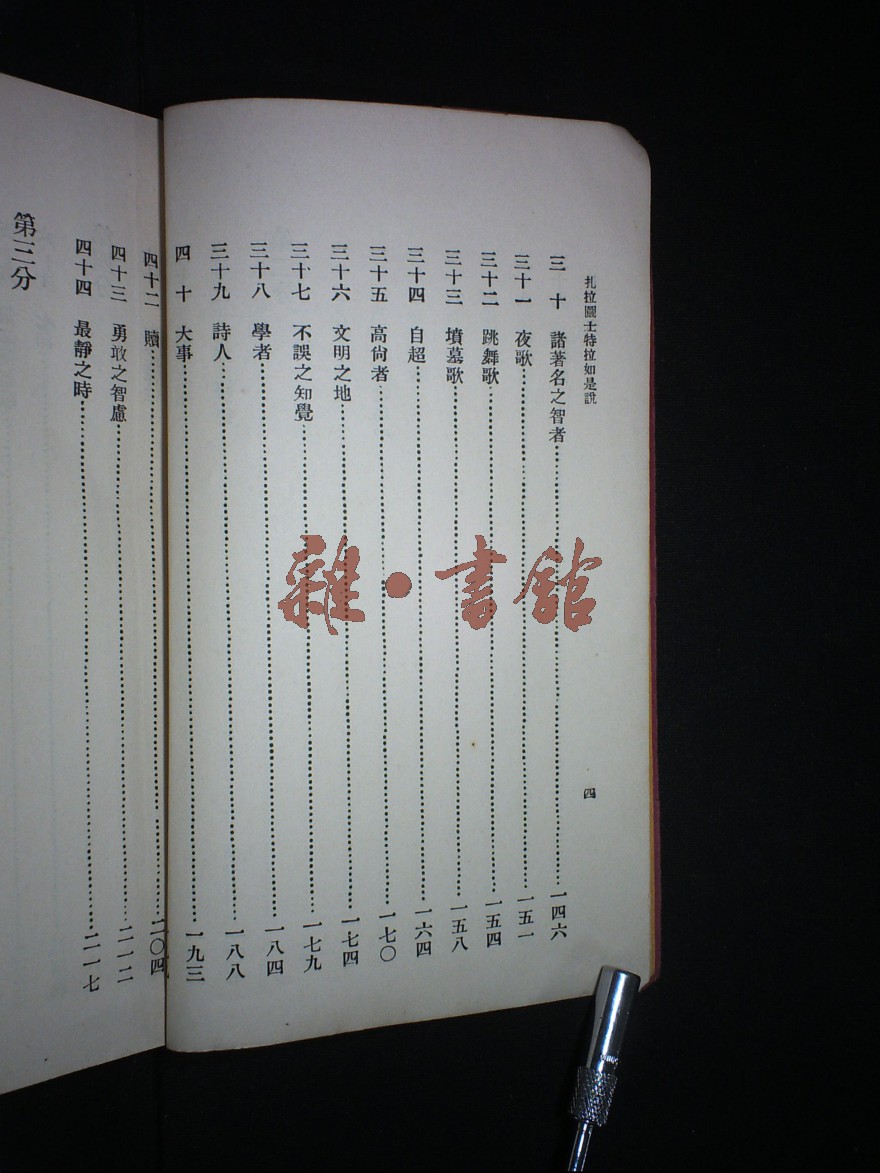 扎拉圖士特拉如是說
四
三十 諸著名之智者 一四六
三十一 夜歌 一五一
三十二 跳舞歌 一五四
三十三 墳墓歌 一五八
三十四 自超 一六四
三十五 高尙者 一七〇
三十六 文明之地 一七四
三十七 不誤之知覺 一七九
三十八 學者 一八四
三十九 詩人 一八八
四十 大事 一九三
四十二 贖 二〇四
四十三 勇敢之智慮 二一二
四十四 最靜之時 二一七
第三分
雜·書館